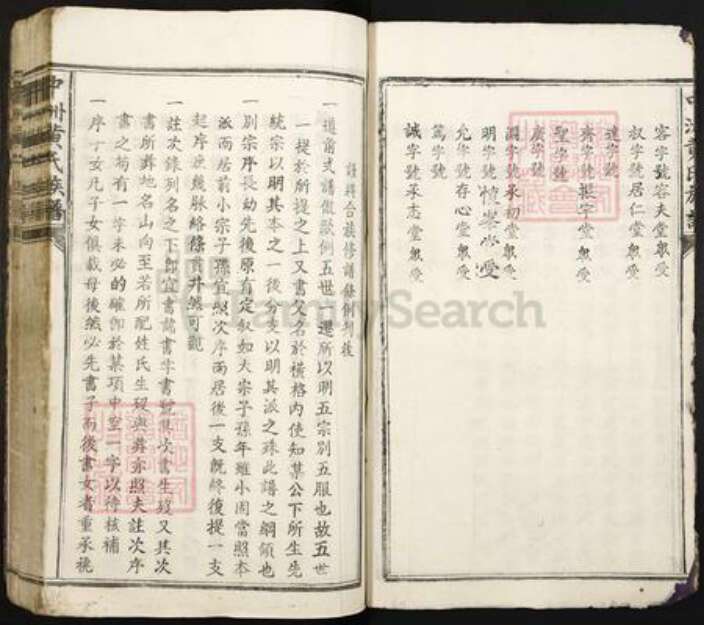 容字號容夫堂眾受
叔字號居仁堂眾受
達字號
齊字號振字堂眾受
聖字號
廣字號
淵字號承初堂眾受
明字號 受
允字號存心堂眾受
篤字號
誠字號承志堂眾受
謹將合族修譜發例列後
一遵 式譜 歐例五世一遷所以明五宗別五服也故五世
一提於所提之上又書父名於橫格內使知某公下所生先
統宗以明其本之一後分支以明其派之殊此譜之綱領也
一別宗序長幼先後原有定叙如大宗子孫年雖小固當照本
派而居前小宗子孫宜照次序而居後一支既終復提一支
起序庶幾脉絡條貫井然可觀
一註次錄列名之下即宜書諱書字書號其次書生歿又其次
書所葬地名山向至若所配姓氏生歿與葬亦照夫註次序
書之苟有一字未必的確即於某項中空一字以待核補
一序子女凡子女俱載母後然必先書子而後書女者重承祧
中州黃氏族譜
FamilySearch